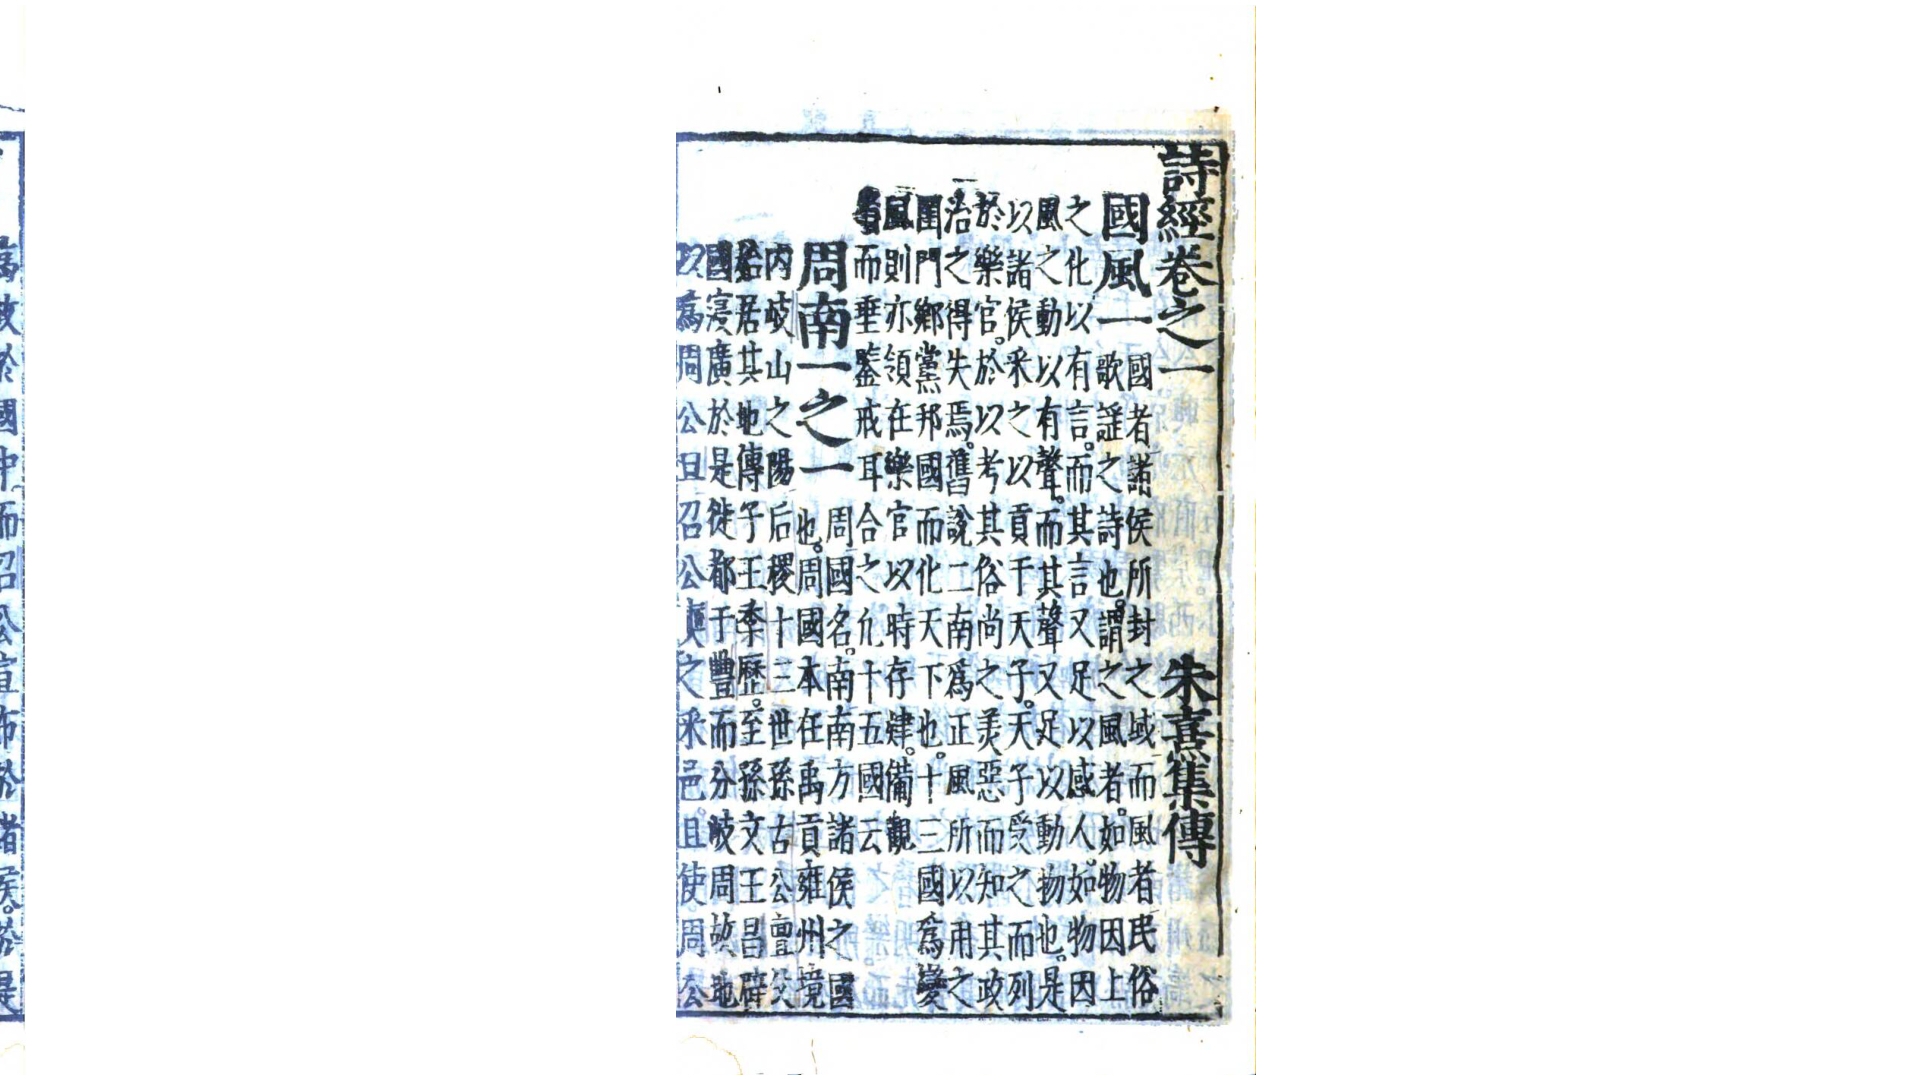 詩經卷之一 朱熹集傳
國風一 國者諸侯所封之域而風者民俗
歌謡之詩也。謂之風者。如物因上
之化以有言。而其言又足以感人。如物因
風之動以有聲。而其聲又足以動物也。是
以諸侯采之以貢于天子。天子受之而列
於樂官。於以考其俗尚之美惡而知其政
治之得失焉。舊說二南爲正風所以用之
閨門鄉黨邦國而化天下也。十三國爲變
風則亦領在樂官以時存肄。備觀
省而垂鑒戒耳合之凡十五國云
周南一之一 周國名。南南方諸侯之國
也。周國本在禹貢雍州境
内岐山之陽后稷十三世孫古公亶父
始居其地傳子王季歷。至孫文王昌辟
國寖廣於是徙都于豐而分岐周故地
以爲周公旦召公奭之采邑。且使周公
爲政於國中而召公宣布於諸侯。於是